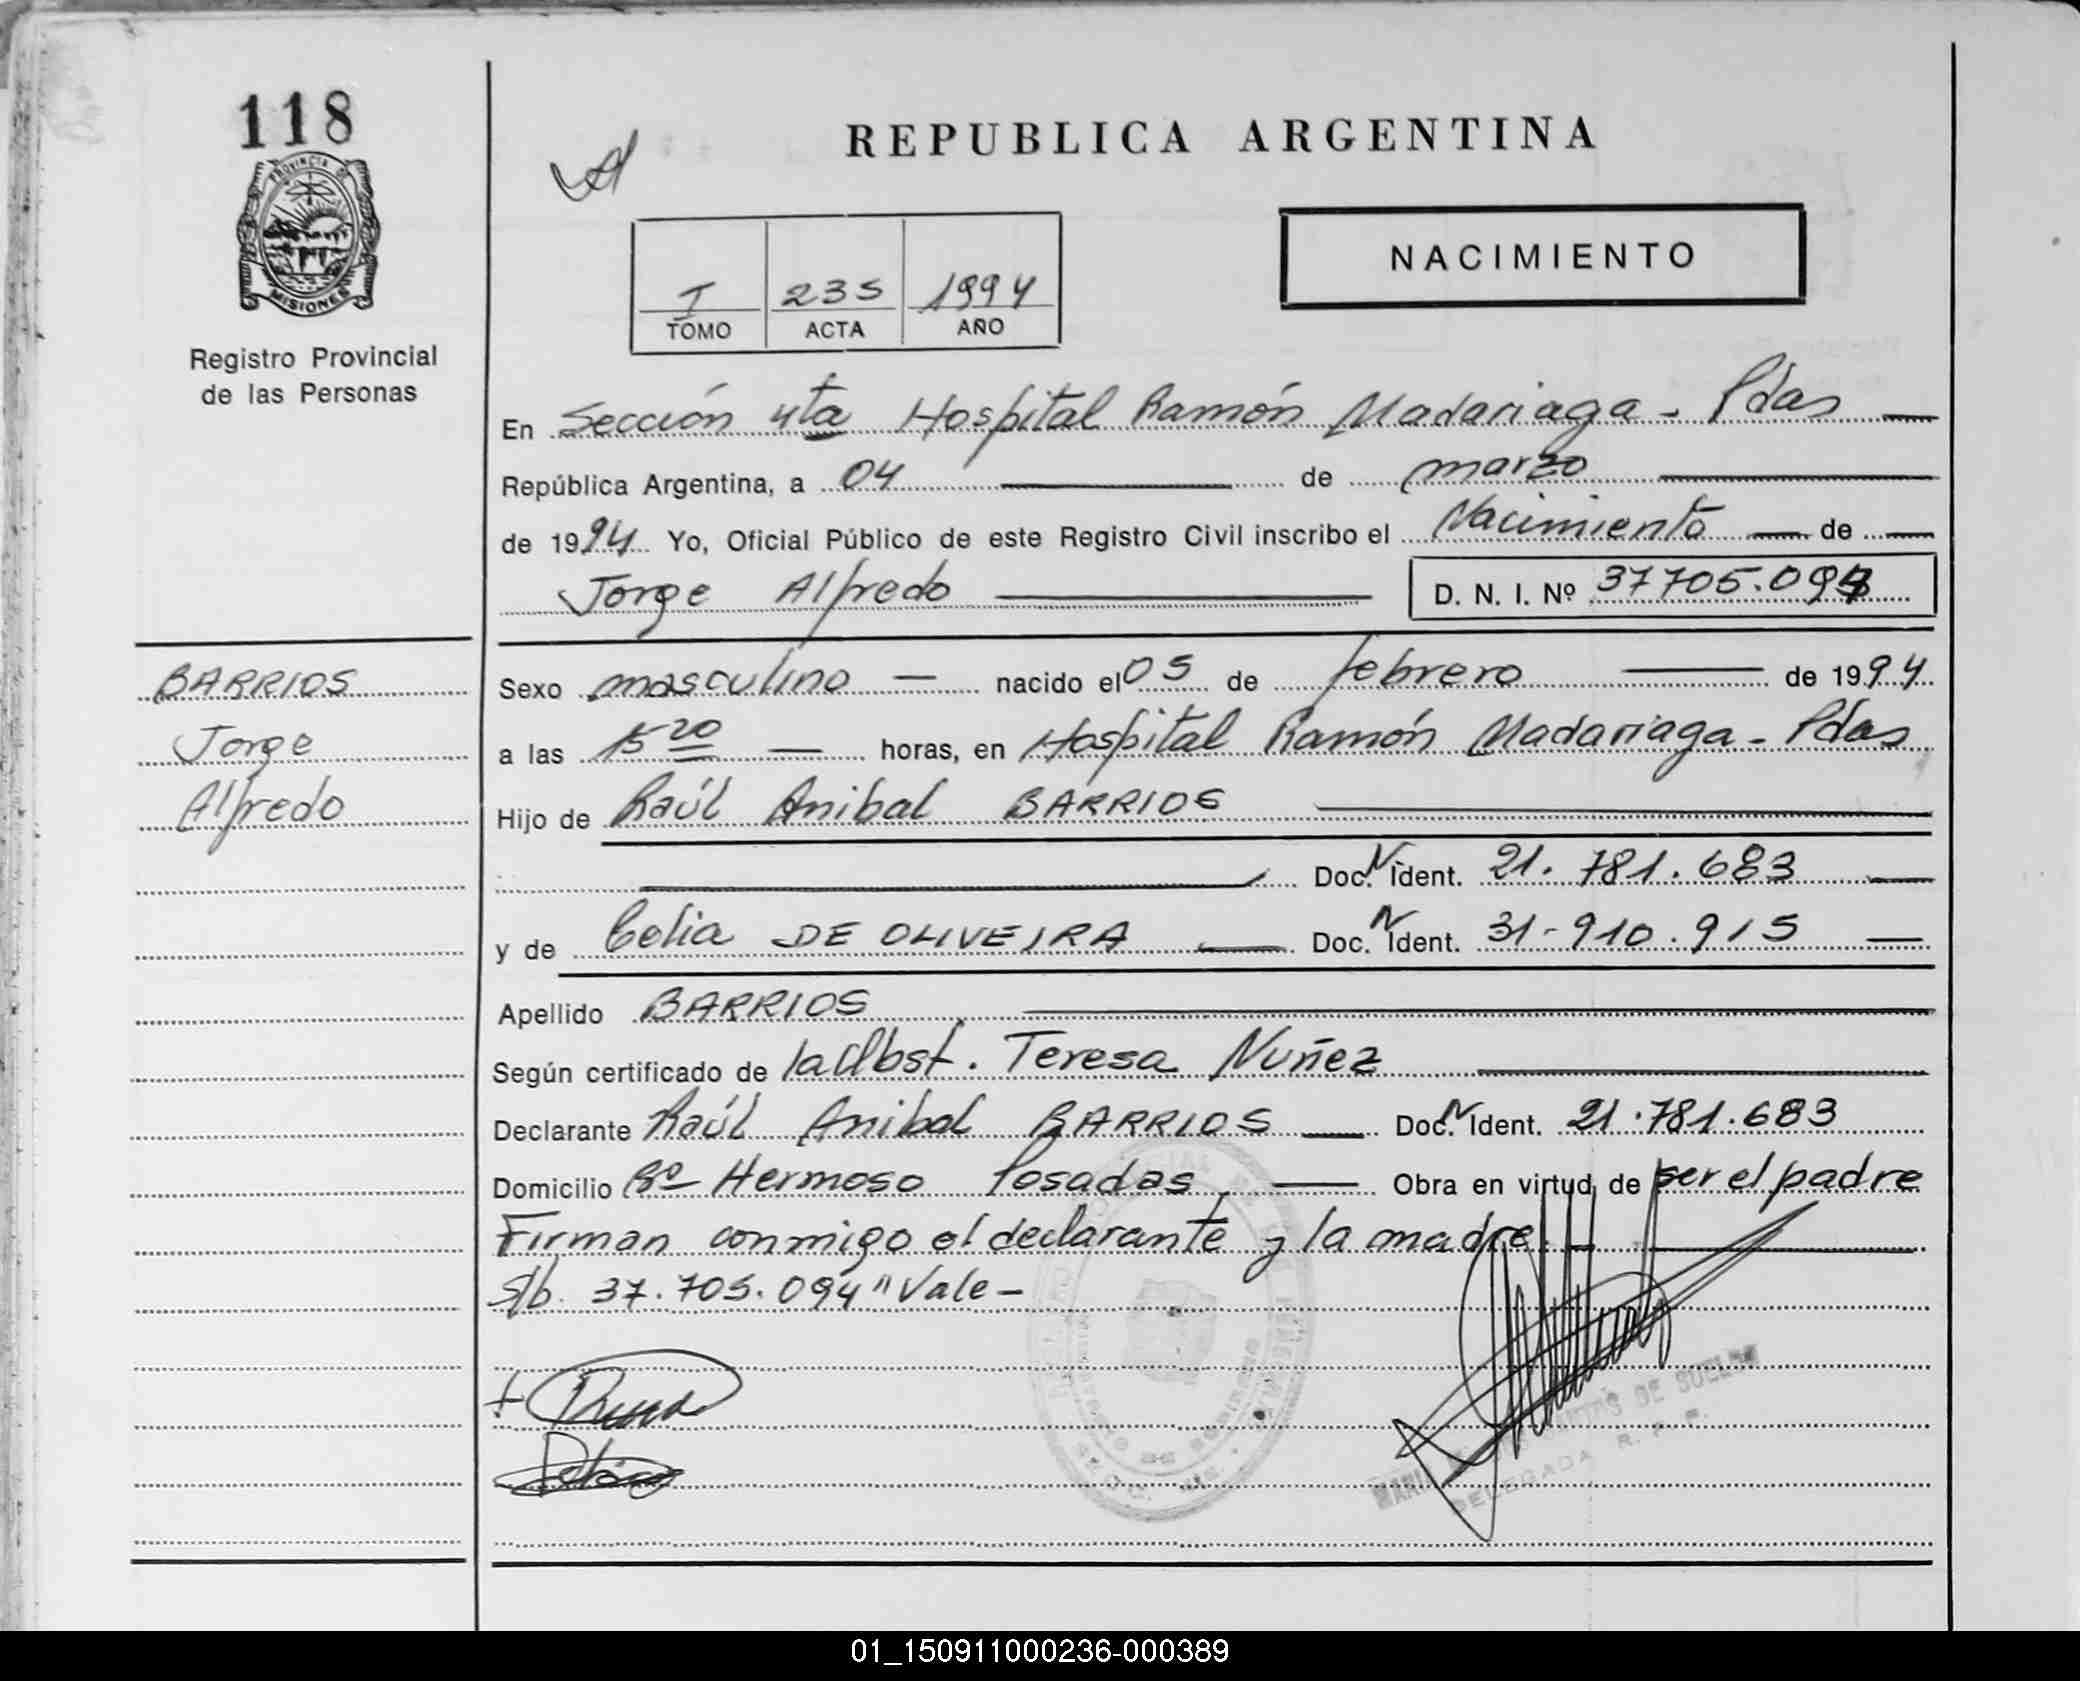 118
REPUBLICA ARGENTINA
PROVINCIA DE
MISIONES
Registro Provincial
de las Personas
I 235 1994
TOMO ACTA AÑO
NACIMIENTO
En Sección 4ta Hospital Ramón Madariaga - Pdas
República Argentina, a 04 de marzo
de 1994 Yo, Oficial Público de este Registro Civil inscribo el Nacimiento de
Jorge Alfredo D. N. I. Nº 37705.094
BARRIOS
Jorge
Alfredo
Sexo masculino nacido el 05 de febrero de 1994
a las 15 20 horas, en Hospital Ramón Madariaga - Pdas
Hijo de Raúl Anibal BARRIOS
Doc. N Ident. 21.781.683
y de Celia DE OLIVEIRA Doc. N Ident. 31-910.915
Apellido BARRIOS
Según certificado de la Obst. Teresa Nuñez
Declarante Raúl Anibal BARRIOS Doc. N Ident. 21.781.683
Domicilio Bº Hermoso Posadas, Obra en virtud de ser el padre
Firman conmigo el declarante y la madre.
S/b. 37.705.094" Vale -
DE SUELDO
DELEGADA R. P. P.
01_150911000236-000389